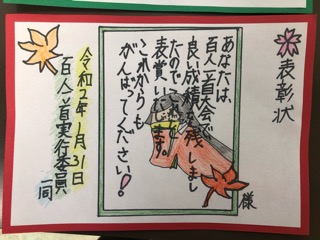 表彰状
様
あなたは、
百人一首大会で
良い成績を残しまし
たので
表賞いたします。
これからも
がんばってください!
令和2年1月31日
百人一首実行委員
一同